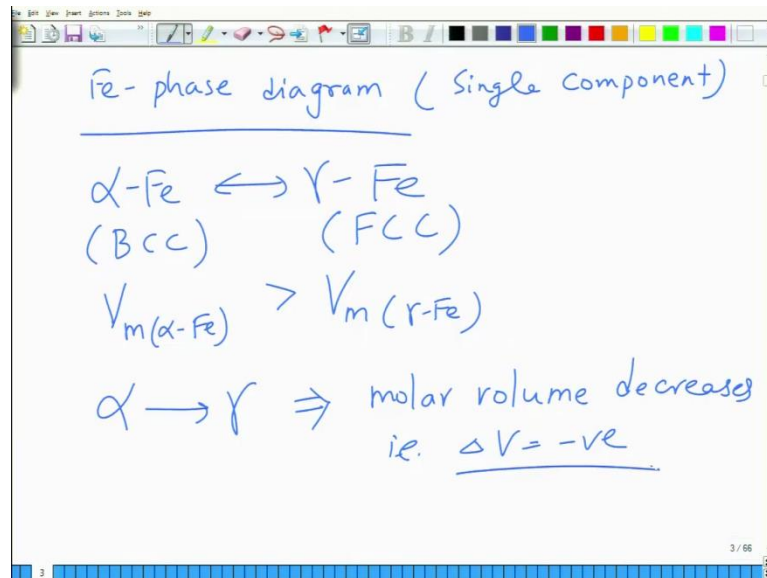 File Edit View Insert Actions Tools Help
Fe- phase diagram ( Single component)
α-Fe ↔ γ- Fe
(BCC) (FCC)
Vm(α-Fe) > Vm(γ-Fe)
α → γ ⇒ molar volume decreases
ie. ΔV = -ve
3 / 66
3